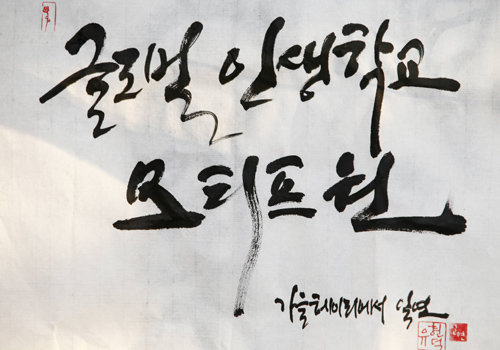 글로벌 인생학교
모티프원
가을 헤이리에서 일연